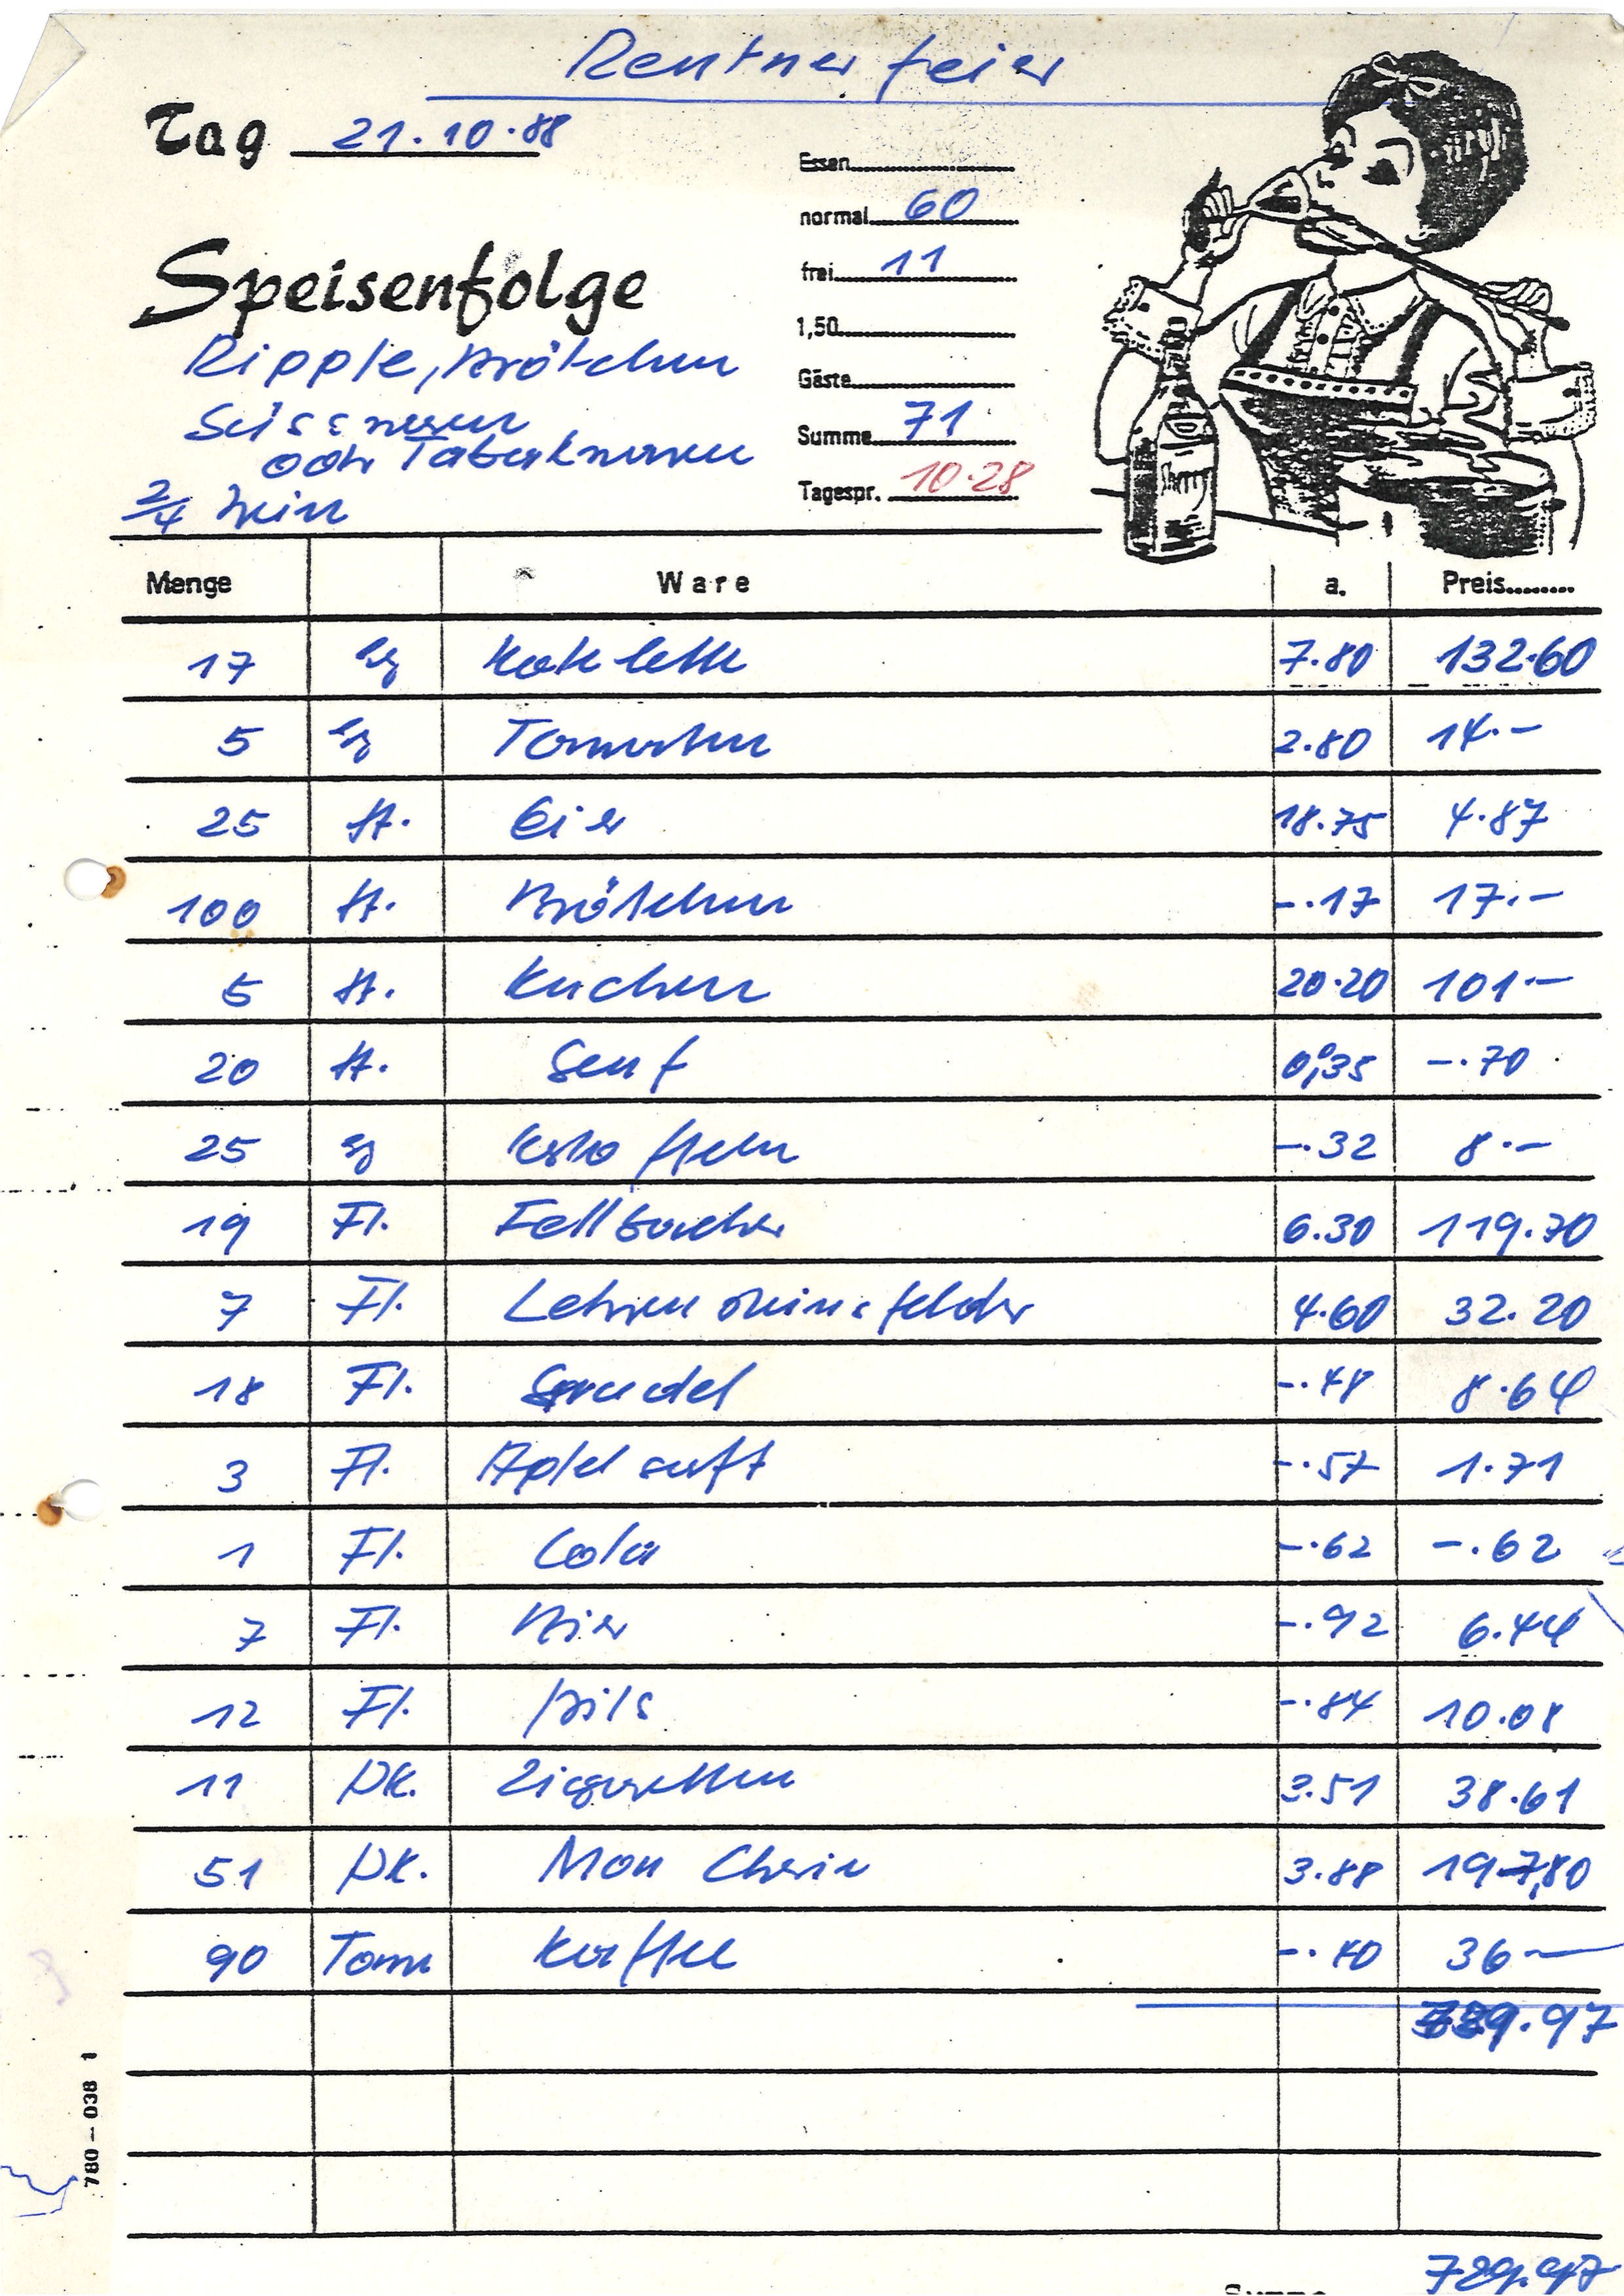 Rentnerfeier
Tag 21.10.88
Essen
normal 60
frei 11
1,50
Gäste
Summe 71
Tagespr. 10.28
Speisenfolge
Ripple, Brötchen
Süsswaren
oder Tabakwaren
2/4 Wein
Menge Ware a. Preis
17 kg Kotelett 7.80 132.60
5 kg Tomaten 2.80 14.-
25 St. Eier 18.75 4.87
100 St. Brötchen -.17 17.-
5 St. Kuchen 20.20 101.-
20 St. Senf 0,35 -.70
25 kg Kartoffeln -.32 8.-
19 Fl. Fellbacher 6.30 119.70
7 Fl. Lehrensteinsfelder 4.60 32.20
18 Fl. Sprudel -.48 8.64
3 Fl. Apfelsaft -.57 1.71
1 Fl. Cola -.62 -.62
7 Fl. Bier -.92 6.44
12 Fl. Pils -.84 10.08
11 Pk. Zigaretten 3.51 38.61
51 Pk. Mon Cherie 3.88 197,80
90 Tass Kaffee -.40 36-
729.97
780-038 1
729.97